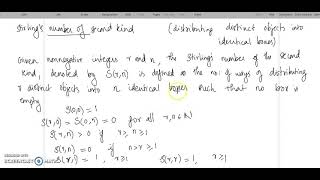 Stirling's number of second kind (distributing distinct objects into
identical boxes)
Given nonnegative integers r and n, the Stirling's number of the second
kind, denoted by S(r,n) is defined as the no. of ways of distributing
r distinct objects into n identical boxes such that no box is
empty.
S(0,0) = 1
S(r,0) = S(0,n) = 0 for all r,n ∈ ℕ
S(r,n) > 0 if r ≥ n ≥ 1
S(r,n) = 0 if n > r ≥ 1
S(r,1) = 1, r ≥ 1 S(r,r) = 1, r ≥ 1
RECORDED WITH
SCREENCAST MATIC